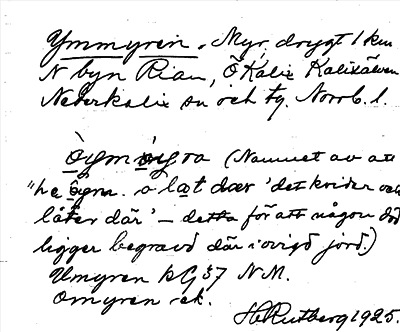 Ymmyren. Myr, drygt 1 km
N byn Rian, Ö Kalix Kalixälven
Nederkalix sn och tg. Norrb. l.
(Namnet av att
"he ögnar o låt där 'det kvider och
låter där' – detta för att någon död
ligger begravd där i ovigd jord.)
Umyren kG 37 N.M.
Omyren ek.
H Rutberg 1925.